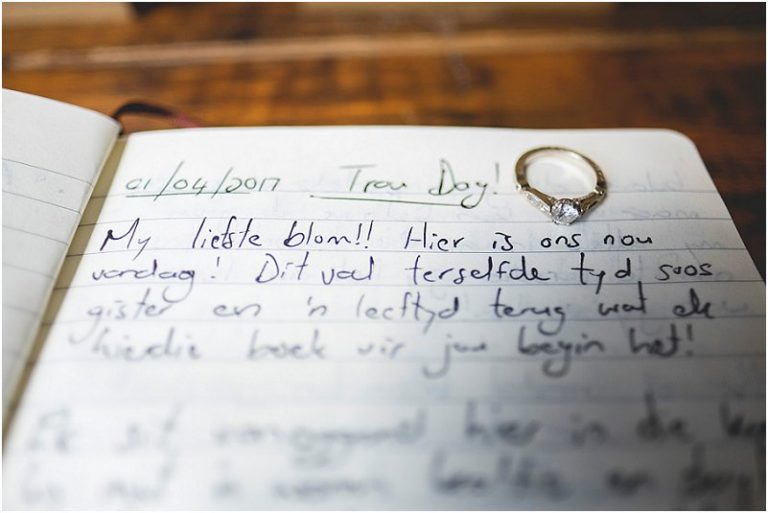 01/04/2017 Trou Day!
My liefste blom!! Hier is ons nou
vandag! Dit val terselfde tyd soos
gister en 'n leeftyd terug wat ek
hierdie boek vir jou begin het!
Ek sit vanoggend hier in die